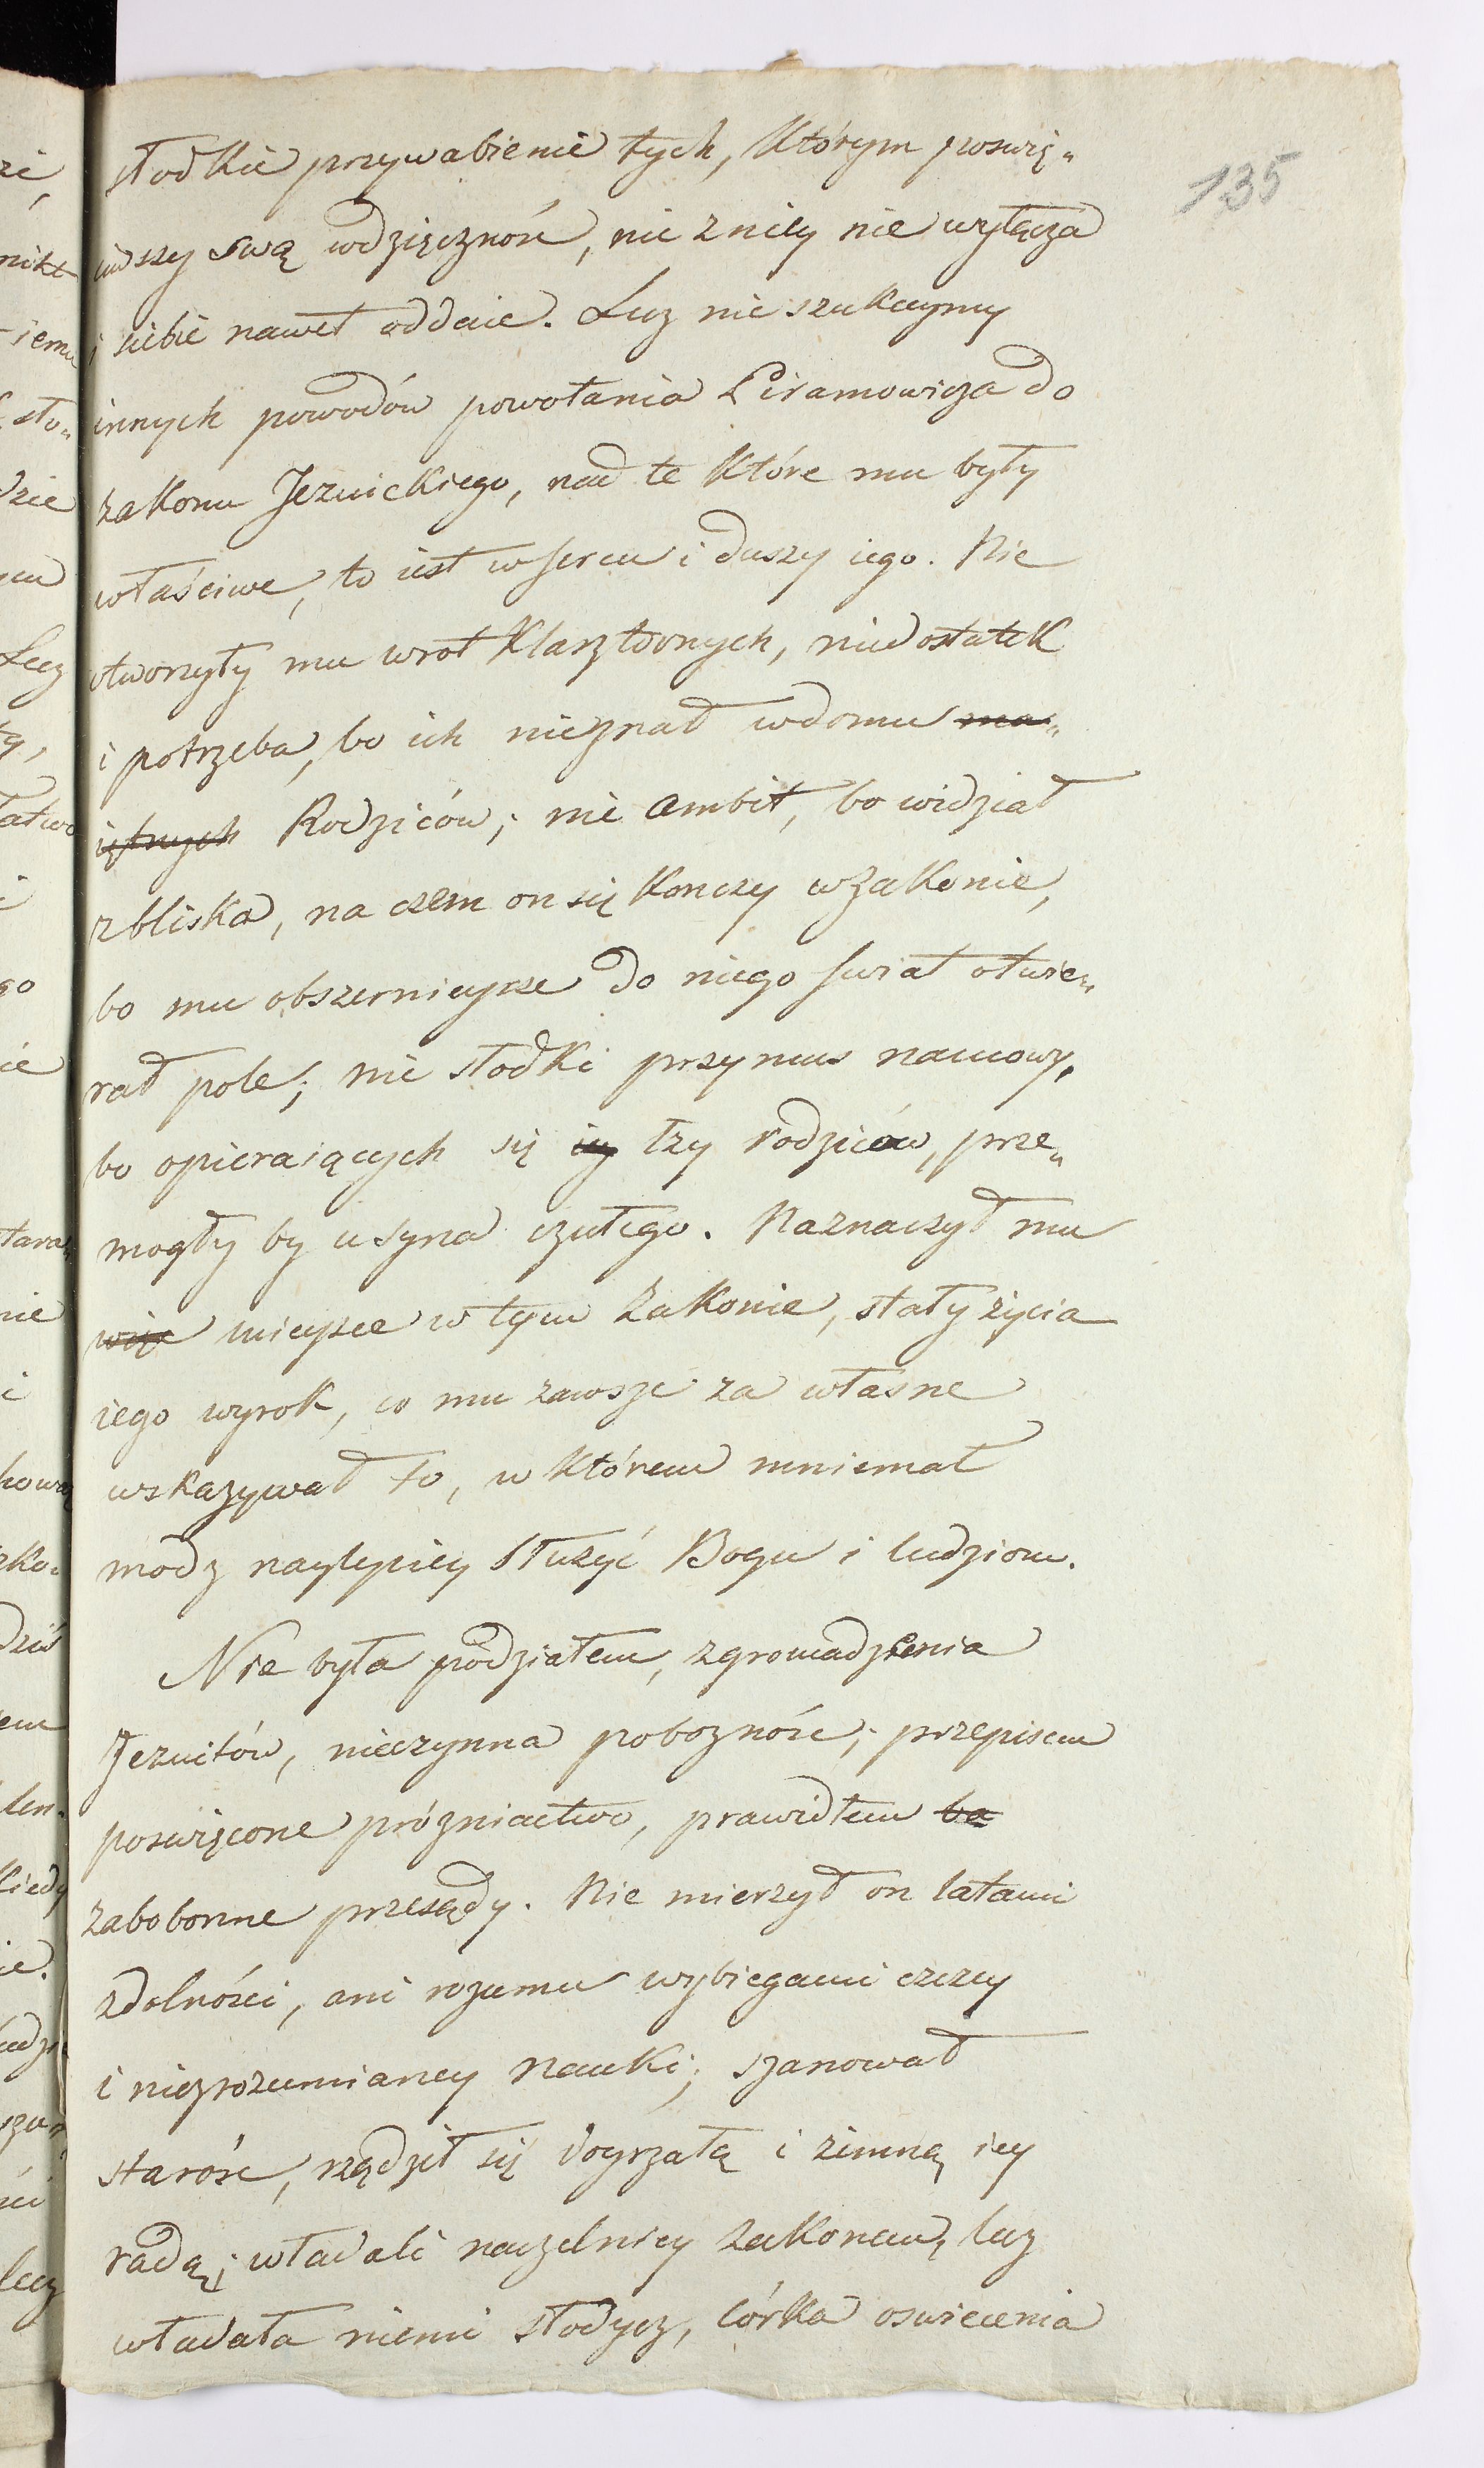 135
słodkie przywabienie tych, którym poswię„
ciwszy swą wdzięczność, nic z niey nie wyłącza
i siebie nawet oddaie. Lecz nie szukaymy
innych powodów powołania Piramowicza do
zakonu Jezuickiego, nad te które mu były
właściwe, to iest w sercu i duszy iego. Nie
otworzyły mu wrot klasztornych, niedostatek
i potrzeba, bo ich nieznał w domu ma„
iętnych Rodziców; nie ambit, bo widział
zbliska, na czem on się konczy w zakonie,
bo mu obszernieysze do niego swiat otwie„
rał pole; nie słodki przymus namowy,
bo opieraiących się iey łzy rodziców, prze„
mogły by u syna czułego. Naznaczył mu
więc mieysce w tym Zakonie, stały życia
iego wyrok, co mu zawsze za własne
wskazywał to, w którem mniemał
modz naylepiey służyć Bogu i ludziom.
Nie była podziałem, zgromadzenia
Jezuitów, nieczynna pobożność; przepisem
poswięcone próżniactwo, prawidłem ba
zabobonne przesądy. Nie mierzył on latami
zdolności, ani rozumu wybiegami czczey
i niezrozumianey nauki; szanował
starość, rządził się doyrzałą i zimną iey
radą; władali naczelnicy zakonem, lecz
władała niemi słodycz, córka oswiecenia
zé,
nikt
iemu
sło„
dzie
Lecz
łatwo
go
ie
nie
i
dziś
len„
kiedy
ie.
lecz